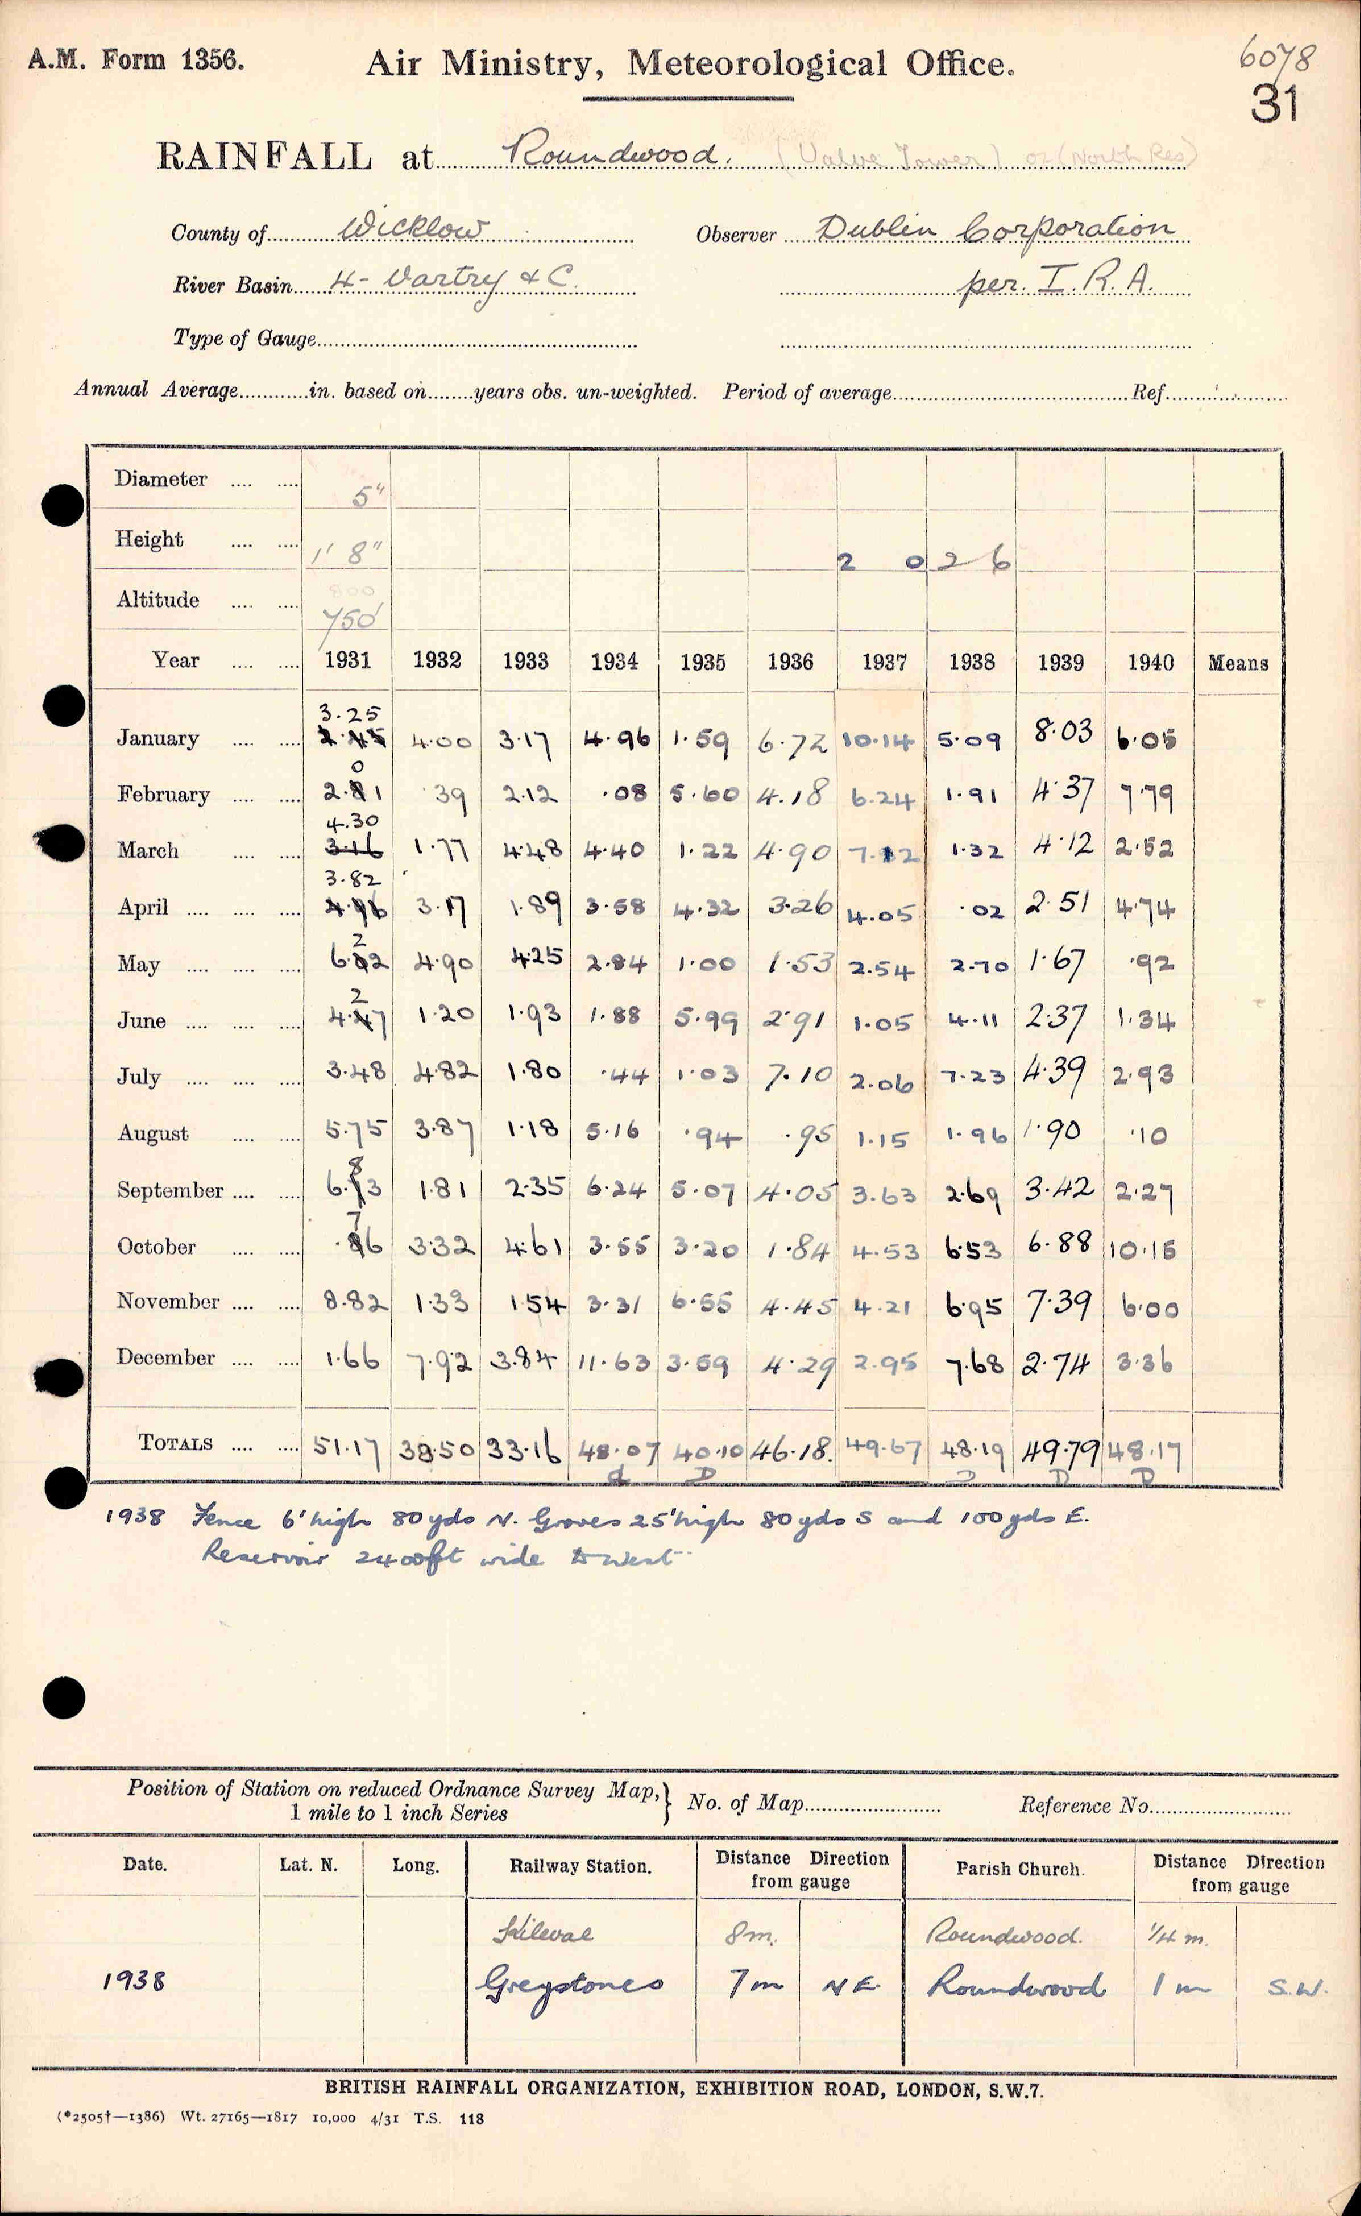 A.M. Form 1356.
Air Ministry, Meteorological Office.
6078
31
RAINFALL at Roundwood. (Valve Tower) 02 (North Res)
County of Wicklow Observer Dublin Corporation
River Basin 4- Vartry & C. per. I.R.A.
Type of Gauge
Annual Average in. based on years obs. un-weighted. Period of average Ref.
Diameter 5"
Height 1' 8" 2 0 2 6
Altitude 800
750'
Year 1931 1932 1933 1934 1935 1936 1937 1938 1939 1940 Means
3.25
January 2.45 4.00 3.17 4.96 1.59 6.72 10.14 5.09 8.03 6.05
0
February 2.81 .39 2.12 .08 5.60 4.18 6.24 1.91 4.37 7.79
4.30
March 3.16 1.77 4.48 4.40 1.22 4.90 7.12 1.32 4.12 2.52
3.82
April 4.96 3.17 1.89 3.58 4.32 3.26 4.05 .02 2.51 4.74
2
May 6.02 4.90 4.25 2.84 1.00 1.53 2.54 2.70 1.67 .92
2
June 4.47 1.20 1.93 1.88 5.99 2.91 1.05 4.11 2.37 1.34
July 3.48 4.82 1.80 .44 1.03 7.10 2.06 7.23 4.39 2.93
August 5.75 3.87 1.18 5.16 .94 .95 1.15 1.96 1.90 .10
8
September 6.13 1.81 2.35 6.24 5.07 4.05 3.63 2.69 3.42 2.27
7
October .86 3.32 4.61 3.55 3.20 1.84 4.53 6.53 6.88 10.15
November 8.82 1.33 1.54 3.31 6.55 4.45 4.21 6.95 7.39 6.00
December 1.66 7.92 3.84 11.63 3.59 4.29 2.95 7.68 2.74 3.36
TOTALS 51.17 38.50 33.16 48.07 40.10 46.18. 49.67 48.19 49.79 48.17
d D D D D
1938 Fence 6' high 80 yds N. Groves 25' high 80 yds S and 100 yds E.
Reservoir 2400 ft wide to West
Position of Station on reduced Ordnance Survey Map,
1 mile to 1 inch Series
No. of Map Reference No.
Date. Lat. N. Long. Railway Station. Distance Direction from gauge Parish Church. Distance Direction from gauge
8m. Roundwood. 1/4 m.
1938 Greystones 7m NE Roundwood 1 m S.W.
BRITISH RAINFALL ORGANIZATION, EXHIBITION ROAD, LONDON, S.W.7.
(*2505†—1386) Wt. 27165—1817 10,000 4/31 T.S. 118